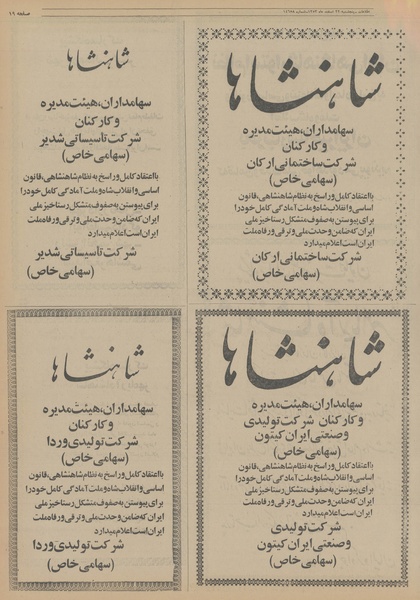 صفحه ۱۹
شاهنشاها
سهامداران،هیئت مدیره
و کارکنان
شرکت ساختمانی ارکان
(سهامی خاص)
با اعتقاد کامل و راسخ به نظام شاهنشاهی، قانون
اساسی و انقلاب شاه و ملت آمادگی کامل خود را
برای پیوستن به صفوف متشکل رستاخیز ملی
ایران که ضامن وحدت ملی و ترقی و رفاه ملت
ایران است اعلام میدارد
شرکت ساختمانی ارکان
(سهامی خاص)
شاهنشاها
سهامداران،هیئت مدیره
و کارکنان
شرکت تاسیساتی شدیر
(سهامی خاص)
با اعتقاد کامل و راسخ به نظام شاهنشاهی، قانون
اساسی و انقلاب شاه و ملت آمادگی کامل خود را
برای پیوستن به صفوف متشکل رستاخیز ملی
ایران که ضامن وحدت ملی و ترقی و رفاه ملت
ایران است اعلام میدارد
شرکت تاسیساتی شدیر
(سهامی خاص)
شاهنشاها
سهامداران، هیئت مدیره
و کارکنان شرکت تولیدی
و صنعتی ایران کیتون
(سهامی خاص)
با اعتقاد کامل و راسخ به نظام شاهنشاهی، قانون
اساسی و انقلاب شاه و ملت آمادگی کامل خود را
برای پیوستن به صفوف متشکل رستاخیز ملی
ایران که ضامن وحدت ملی و ترقی و رفاه ملت
ایران است اعلام میدارد
شرکت تولیدی
و صنعتی ایران کیتون
(سهامی خاص)
شاهنشاها
سهامداران،هیئت مدیره
و کارکنان
شرکت تولیدی وردا
(سهامی خاص)
با اعتقاد کامل و راسخ به نظام شاهنشاهی، قانون
اساسی و انقلاب شاه و ملت آمادگی کامل خود را
برای پیوستن به صفوف متشکل رستاخیز ملی
ایران که ضامن وحدت ملی و ترقی و رفاه ملت
ایران است اعلام میدارد
شرکت تولیدی وردا
(سهامی خاص)